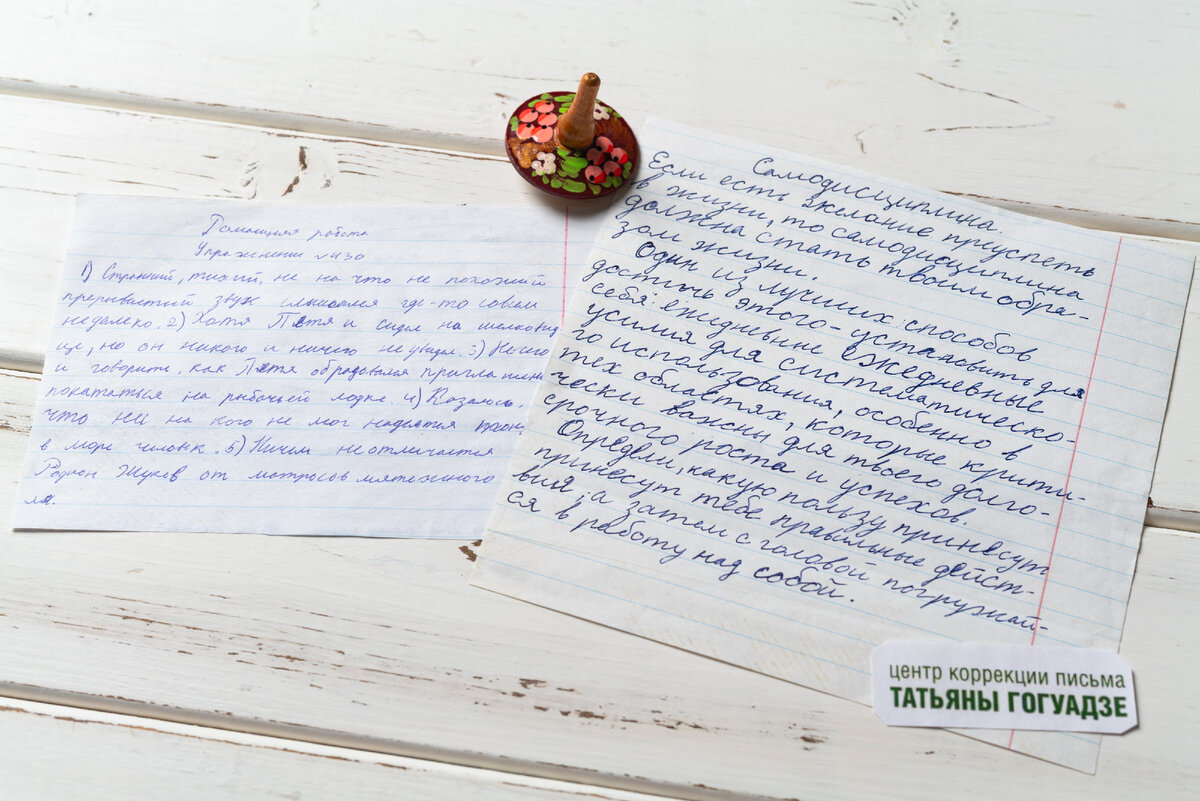 Домашняя работа
Упражнение № 430
1) Странный, тихий, не на что не похожий
прерывистый звук слышался где-то совсем
недалеко. 2) Хатя Петя и сидел на шелковиц
це, но он никого и ничего не увидел. 3) Нечего
и говорить, как Петя обрадовался приглашени
покататься на рыбачей лодке. 4) Казалось,
что ни на кого не мог надеятся
в море человек. 5) Ничем неотличается
Родион Жуков от матросов мятежного
ля.
Самодисциплина.
Если есть желание приуспеть
в жизни, то самодисциплина
должна стать твоим обра-
зом жизни.
Один из лучших способов
достичь этого - установить для
себя: ежедневные ежедневные
усилия для систематическо-
го использования, особенно в
тех областях, которые крити-
чески важны для твоего долго-
срочного роста и успехов.
Определи, какую пользу принесут
принесут тебе правильные дейст-
вия, а затем с головой погружай-
ся в работу над собой.
центр коррекции письма
ТАТЬЯНЫ ГОГУАДЗЕ